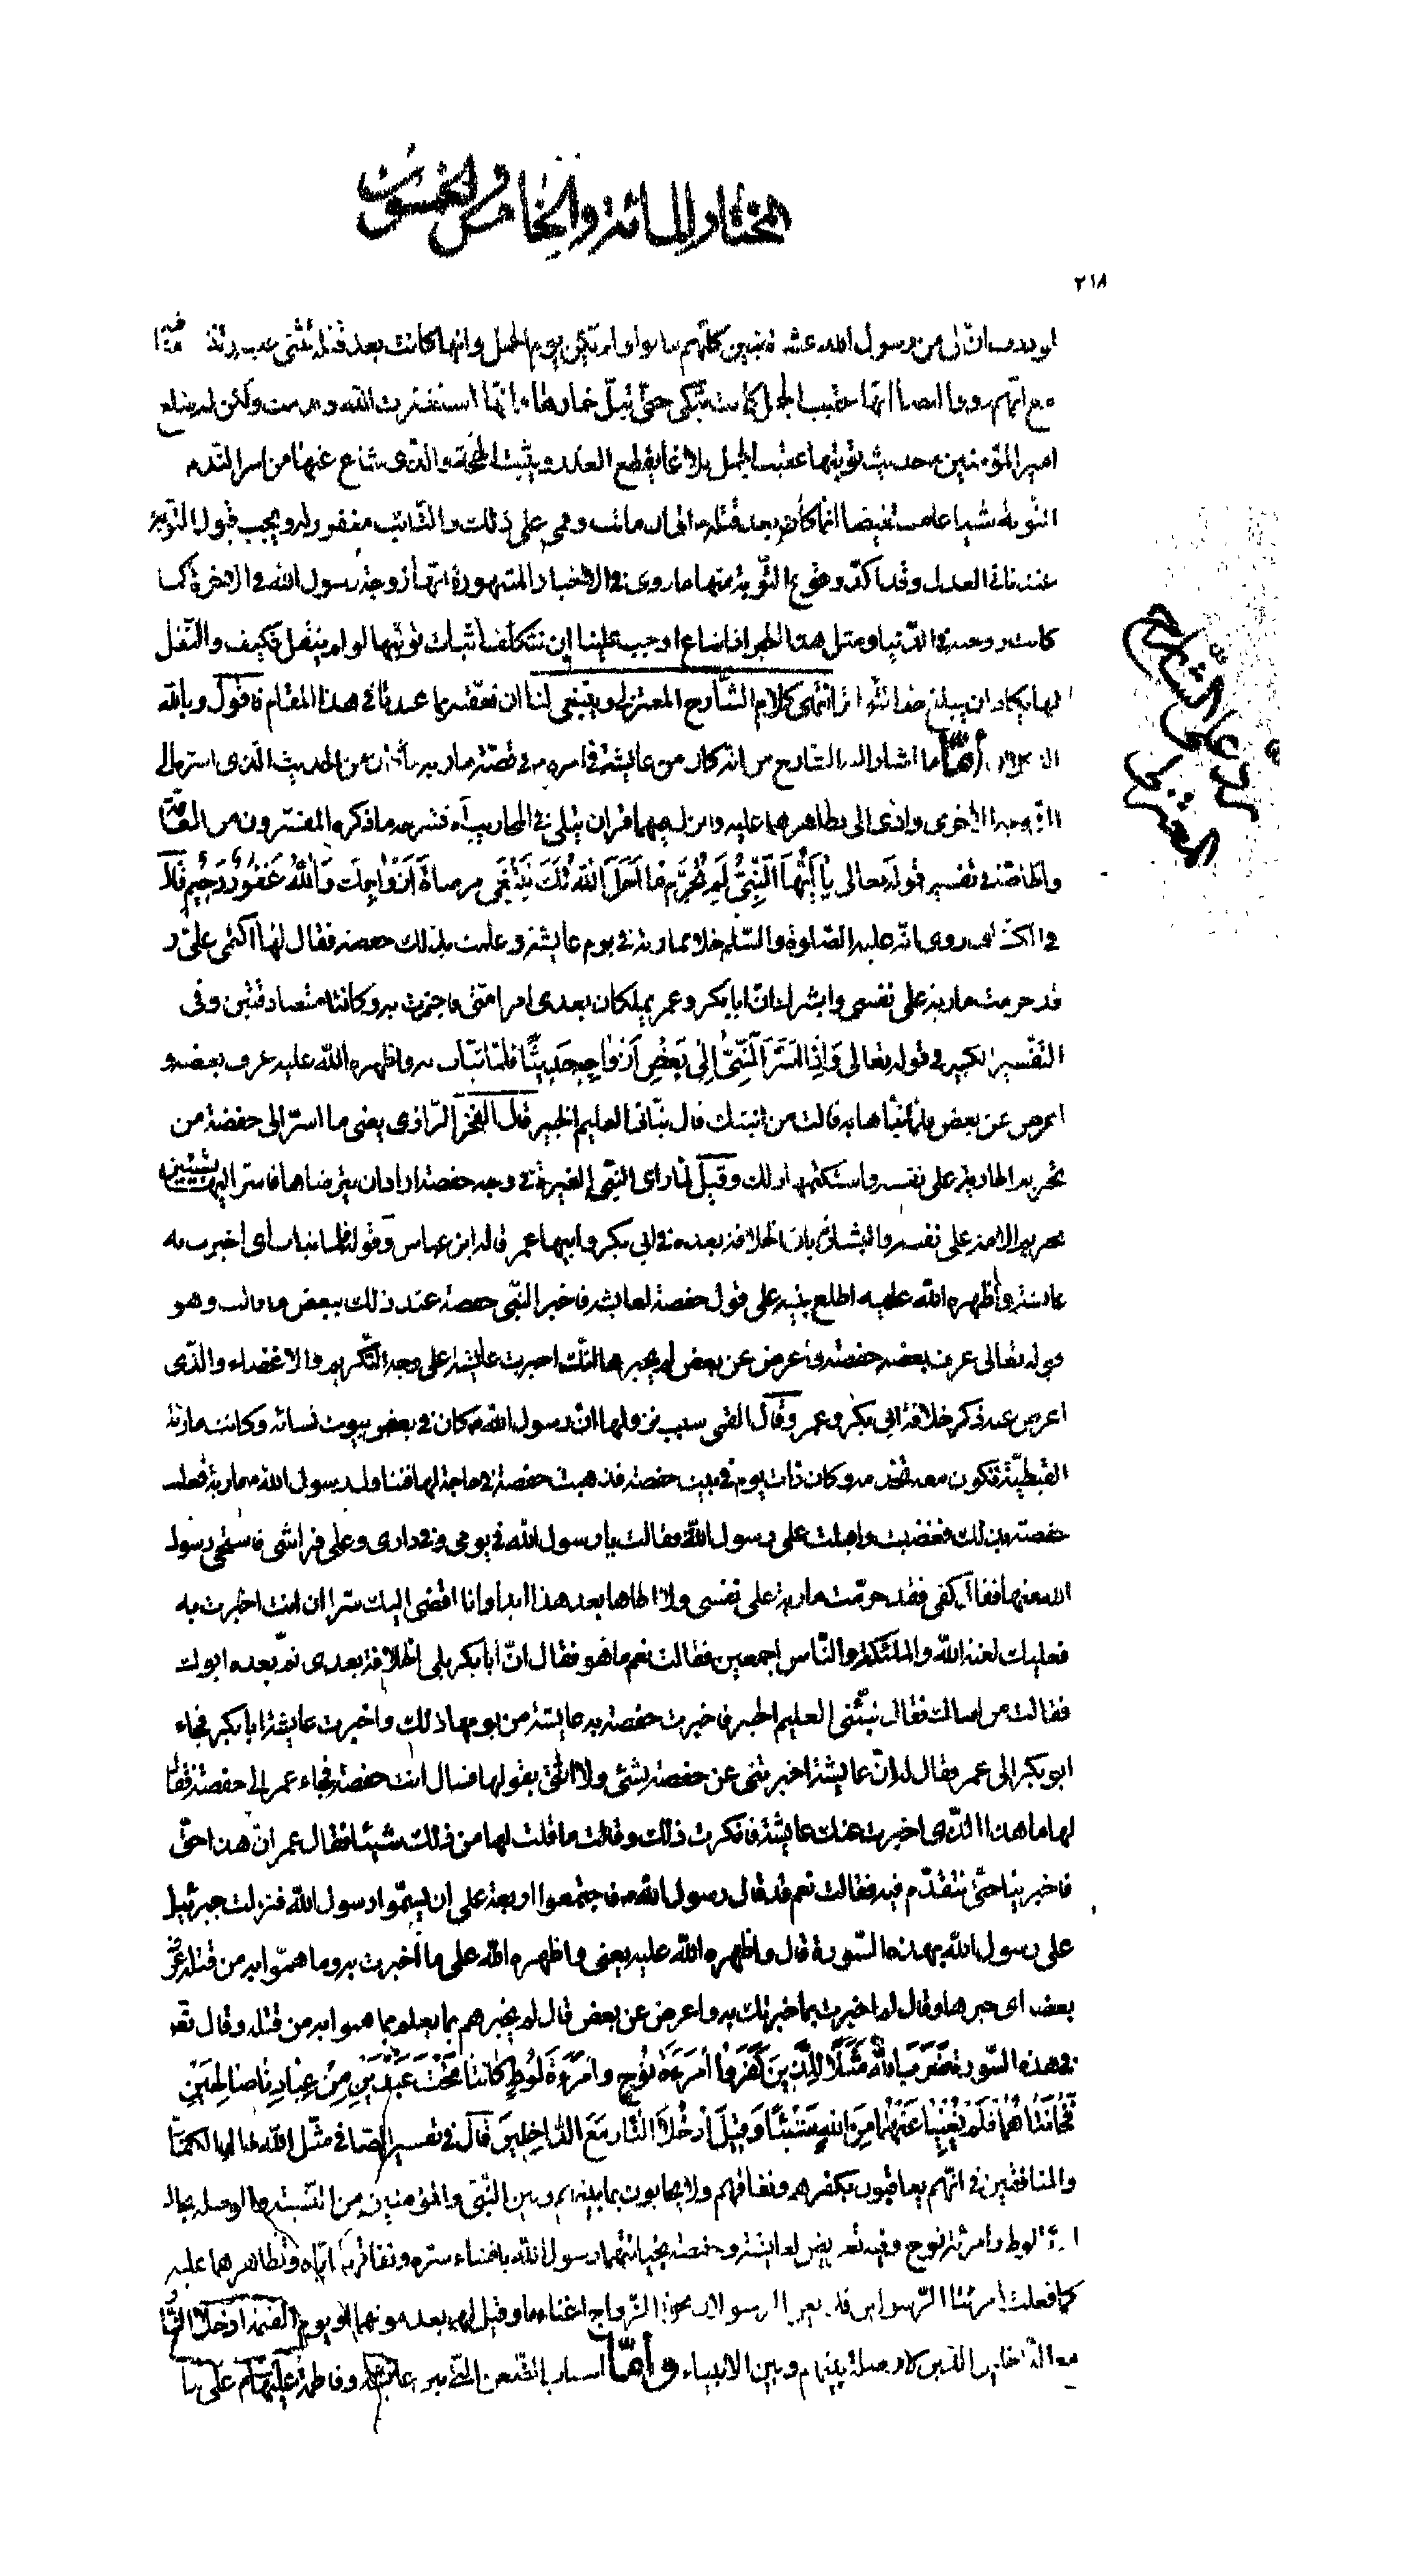 المختار المائة والخامس والخمسون
٢١٨
لو يدب ان لى من رسول الله عشرة بنين كلهم ماتوا ولم يكن يوم الجمل وانها كانت بعد قتله تثنى عليه
مع انهم رووا ايضا انها عقيب الجمل كانت تبكى حتى تبل خمارها وانها استغفرت الله وندمت ولكن لم يبلغ
امير المؤمنين حديث توبتها عقيب الجمل بلاغا يقطع العذر ويثبت الحجة والذى شاع عنها من امر الندم
التوبة شياعا مستفيضا انما كان بعد قتله الى ان ماتت وهى على ذلك والتائب مغفور له ويجب قبول التوبة
عندنا فى العدل وقد اكد وقوع التوبة منها ما روى فى الاخبار المشهورة انها زوجة رسول الله فى الاخرة كما
كانت زوجته فى الدنيا ومثل هذا الخبر اذا شاع اوجب علينا ان نتكلف اثبات توبتها لو لم ينقل فكيف والنقل
لها يكاد ان يبلغ حد التواتر انتهى كلام الشارح المعتزلى وينبغى لنا ان نعقبه بما عندنا فى هذا المقام فاقول وبالله
أما ما اشار اليه الشارح من انه كان من عايشة فى امره فى قصة مارية ما كان من الحديث الذى اسره الى
الزوجة الاخرى وادى الى تظاهرهما عليه وانزل فيهما قران يتلى فى المحاريب آه فشرحه ما ذكره المفسرون من العامة
والخاصة فى تفسير قوله تعالى يا أيها النبى لم تحرم ما احل الله لك تبتغى مرضاة ازواجك والله غفور رحيم قال
فى الكشاف روى انه عليه الصلوة والسلم خلا بمارية فى يوم عايشة وعلمت بذلك حفصة فقال لها اكتمى على و
قد حرمت مارية على نفسى وابشرك ان ابا بكر وعمر يملكان بعدى امر امتى فاخبرت به وكانتا متصادقتين وفى
التفسير الكبير فى قوله تعالى واذ اسر النبى الى بعض ازواجه حديثا فلما نبات به واظهره الله عليه عرف بعضه و
اعرض عن بعض فلما نباها به قالت من انبئك قال نبانى العليم الخبير قال الفخر الرازى يعنى ما اسر الى حفصة من
تحريم المارية على نفسه واستكتمها ذلك وقيل لما راى النبى الغيرة فى وجه حفصة اراد ان يترضاها فاسر اليها بشيئين
تحريم الامة على نفسه والبشارة بان الخلافة بعده فى ابى بكر وابيها عمر قاله ابن عباس وقوله فلما نبات اى اخبرت به
عايشة واظهره الله عليه اطلع نبيه على قول حفصة لعايشة فاخبر النبى حفصة عند ذلك ببعض ما قالت وهو
قوله تعالى عرف بعضه حفصة واعرض عن بعض لم يخبرها انك اخبرت عايشة على وجه التكرم والاغضاء والذى
اعرض عنه ذكر خلافة ابى بكر وعمر وقال القمى سبب نزولها ان رسول الله كان فى بعض بيوت نسائه وكانت مارية
القبطية تكون معه تخدمه وكان ذات يوم فى بيت حفصة فذهبت حفصة فى حاجة لها فتناول رسول الله مارية فعلمت
حفصة بذلك فغضبت واقبلت على رسول الله فقالت يا رسول الله فى يومى وفى دارى وعلى فراشى فاستحى رسول
الله منها فقال كفى فقد حرمت مارية على نفسى ولا اطاها بعد هذا ابدا وانا افضى اليك سرا ان انت اخبرت به
فعليك لعنة الله والملئكة والناس اجمعين فقالت نعم ما هو فقال ان ابا بكر يلى الخلافة بعدى ثم بعده ابوك
فقالت من انباك فقال نبئنى العليم الخبير فاخبرت حفصة به عايشة من يومها ذلك واخبرت عايشة ابا بكر فجاء
ابو بكر الى عمر فقال له ان عايشة اخبرتنى عن حفصة بشئ ولا اثق بقولها فسال انت حفصة فجاء عمر الى حفصة فقال
لها ما هذا الذى اخبرت عنك عايشة فانكرت ذلك وقالت ما قلت لها من ذلك شيئا فقال عمر ان هذا حق
فاخبرينا حتى نتقدم فيه فقالت نعم قد قال رسول الله فاجتمعوا اربعة على ان يسموا رسول الله فنزلت جبرئيل
على رسول الله بهذه السورة قال واظهره الله عليه يعنى واظهره الله على ما اخبرت به وما هموا به من قتله عرف
بعضه اى خبرها وقال لم اخبرت بما اخبرتك به واعرض عن بعض قال لم يخبرهم بما يعلم بما هموا به من قتله وقال تع
فى هذه السورة ضرب الله مثلا للذين كفروا امرءة نوح وامرءة لوط كانتا تحت عبدين من عبادنا صالحين
فخانتاهما فلم يغنيا عنهما من الله شيئا وقيل ادخلا النار مع الداخلين قال فى تفسير الصافى مثل الله حال الكفار
والمنافقين فى انهم يعاقبون بكفرهم ونفاقهم ولا يحابون بما بينهم وبين النبى والمؤمنين من النسبة والوصلة بحال
امرأة لوط وامرئة نوح وفيه تعريض لعايشة وحفصة بخيانتهما رسول الله بافشاء سره ونفاقهما اياه وتظاهرهما عليه
كما فعلت امرئتا الرسولين فلم يغن الرسولان بحق الزواج اغناء ما وقيل لهما بعد موتهما او يوم القيمة ادخلا النار
مع الداخلين الذين لا وصلة بينهم وبين الانبياء وأما
رد على الشارح
المعتزلى